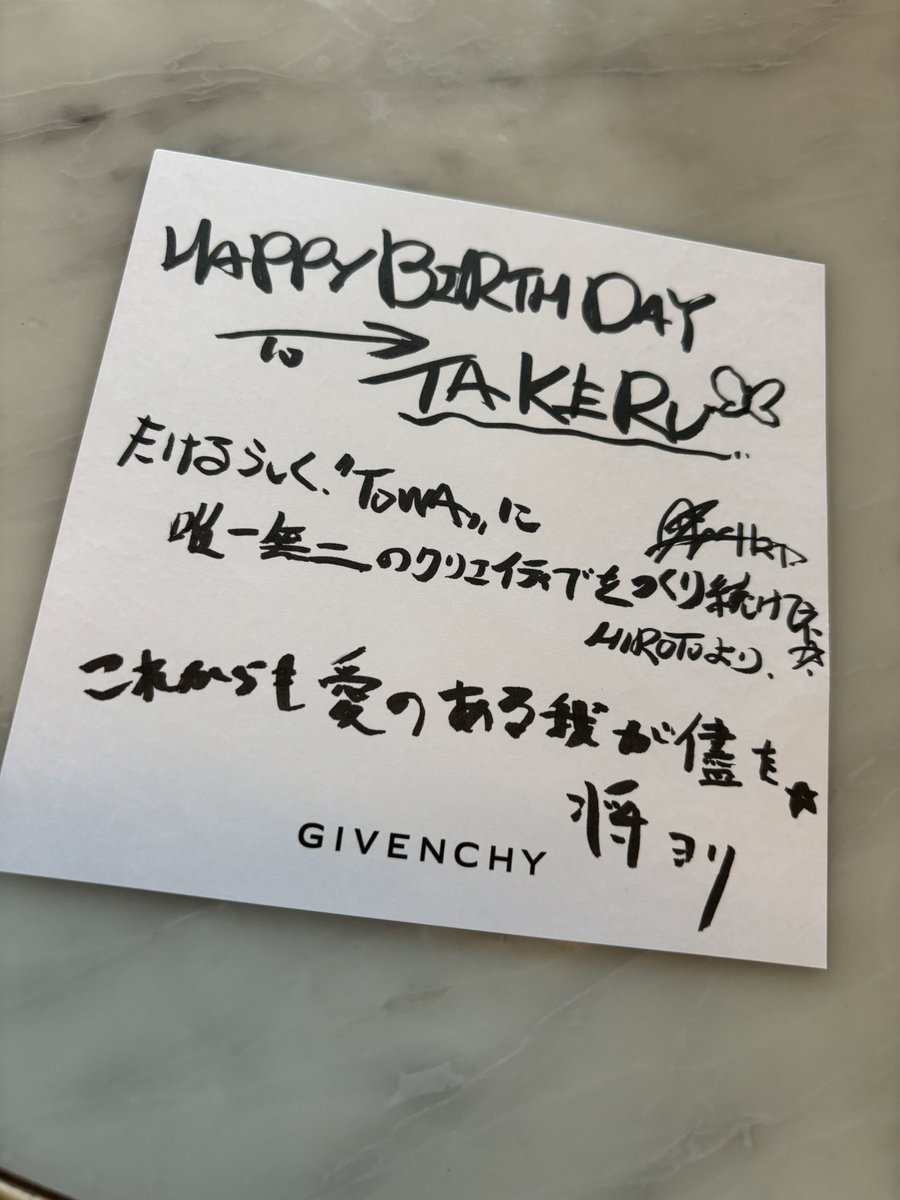 HAPPY BIRTH DAY
To
TAKERU
たけるらしく、"ToWA"に
唯一無二のクリエイティブをつくり続けて
HIROTOより、☆
これからも愛のある我が儘を★
将ヨリ
GIVENCHY